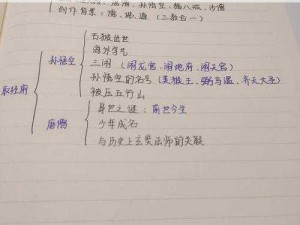 孙悟空、猪八戒、沙僧
创作背景：儒、佛、道（三教合一）
取经前
孙悟空
石猴出世
海外学艺
三闹（闹龙宫、闹地府、闹天宫）
孙悟空的名号（美猴王、弼马温、齐天大圣）
被压五行山
唐僧
身世之谜：前世今生
少年成名
与历史上玄奘法师的关联